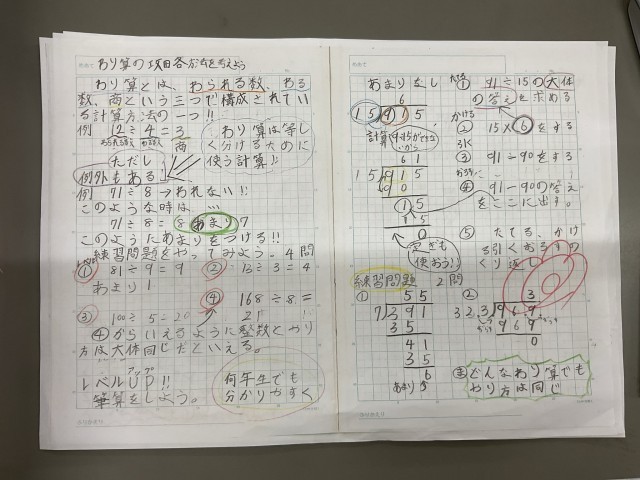 わり算の項目各方法を考えよう
わり算とは、わられる数、わる
数、商という三つで構成されてい
る計算方法の一つ!!
例 12÷4=3
わられる数 わる数 商
わり算は等し
く分けるために
使う計算!!
ただし
例外もある
例 71÷8→われない!!
このような時は、…
71÷8=(8 あまり7
このようにあまりをつける!!
練習問題をやってみよう。4問
① 81÷9=9
あまり1
② 13÷3=4
③ 100÷5=20
④ 168÷8=
21
④からいえるように整数とやり
方は大体同じだといえる。
レベルUP!!
アップ
筆算をしよう。
何年生でも
分かりやすく
あまりなし
6
15)915
計算
61
15)915
90
15
15
0
使おう!
たてる
① 91÷15の大体
の答えを求める
かける
② 15×6をする
引く
③ 91-90をする
おろす
④ 91-90の答え
をここに出す。
⑤ たてる、かけ
る引くおろすの
くり返し
練習問題 2問
①
55
7)391
35
41
35
6
あまり
②
3
323)969
969
0
どんなわり算でも
やり方は同じ